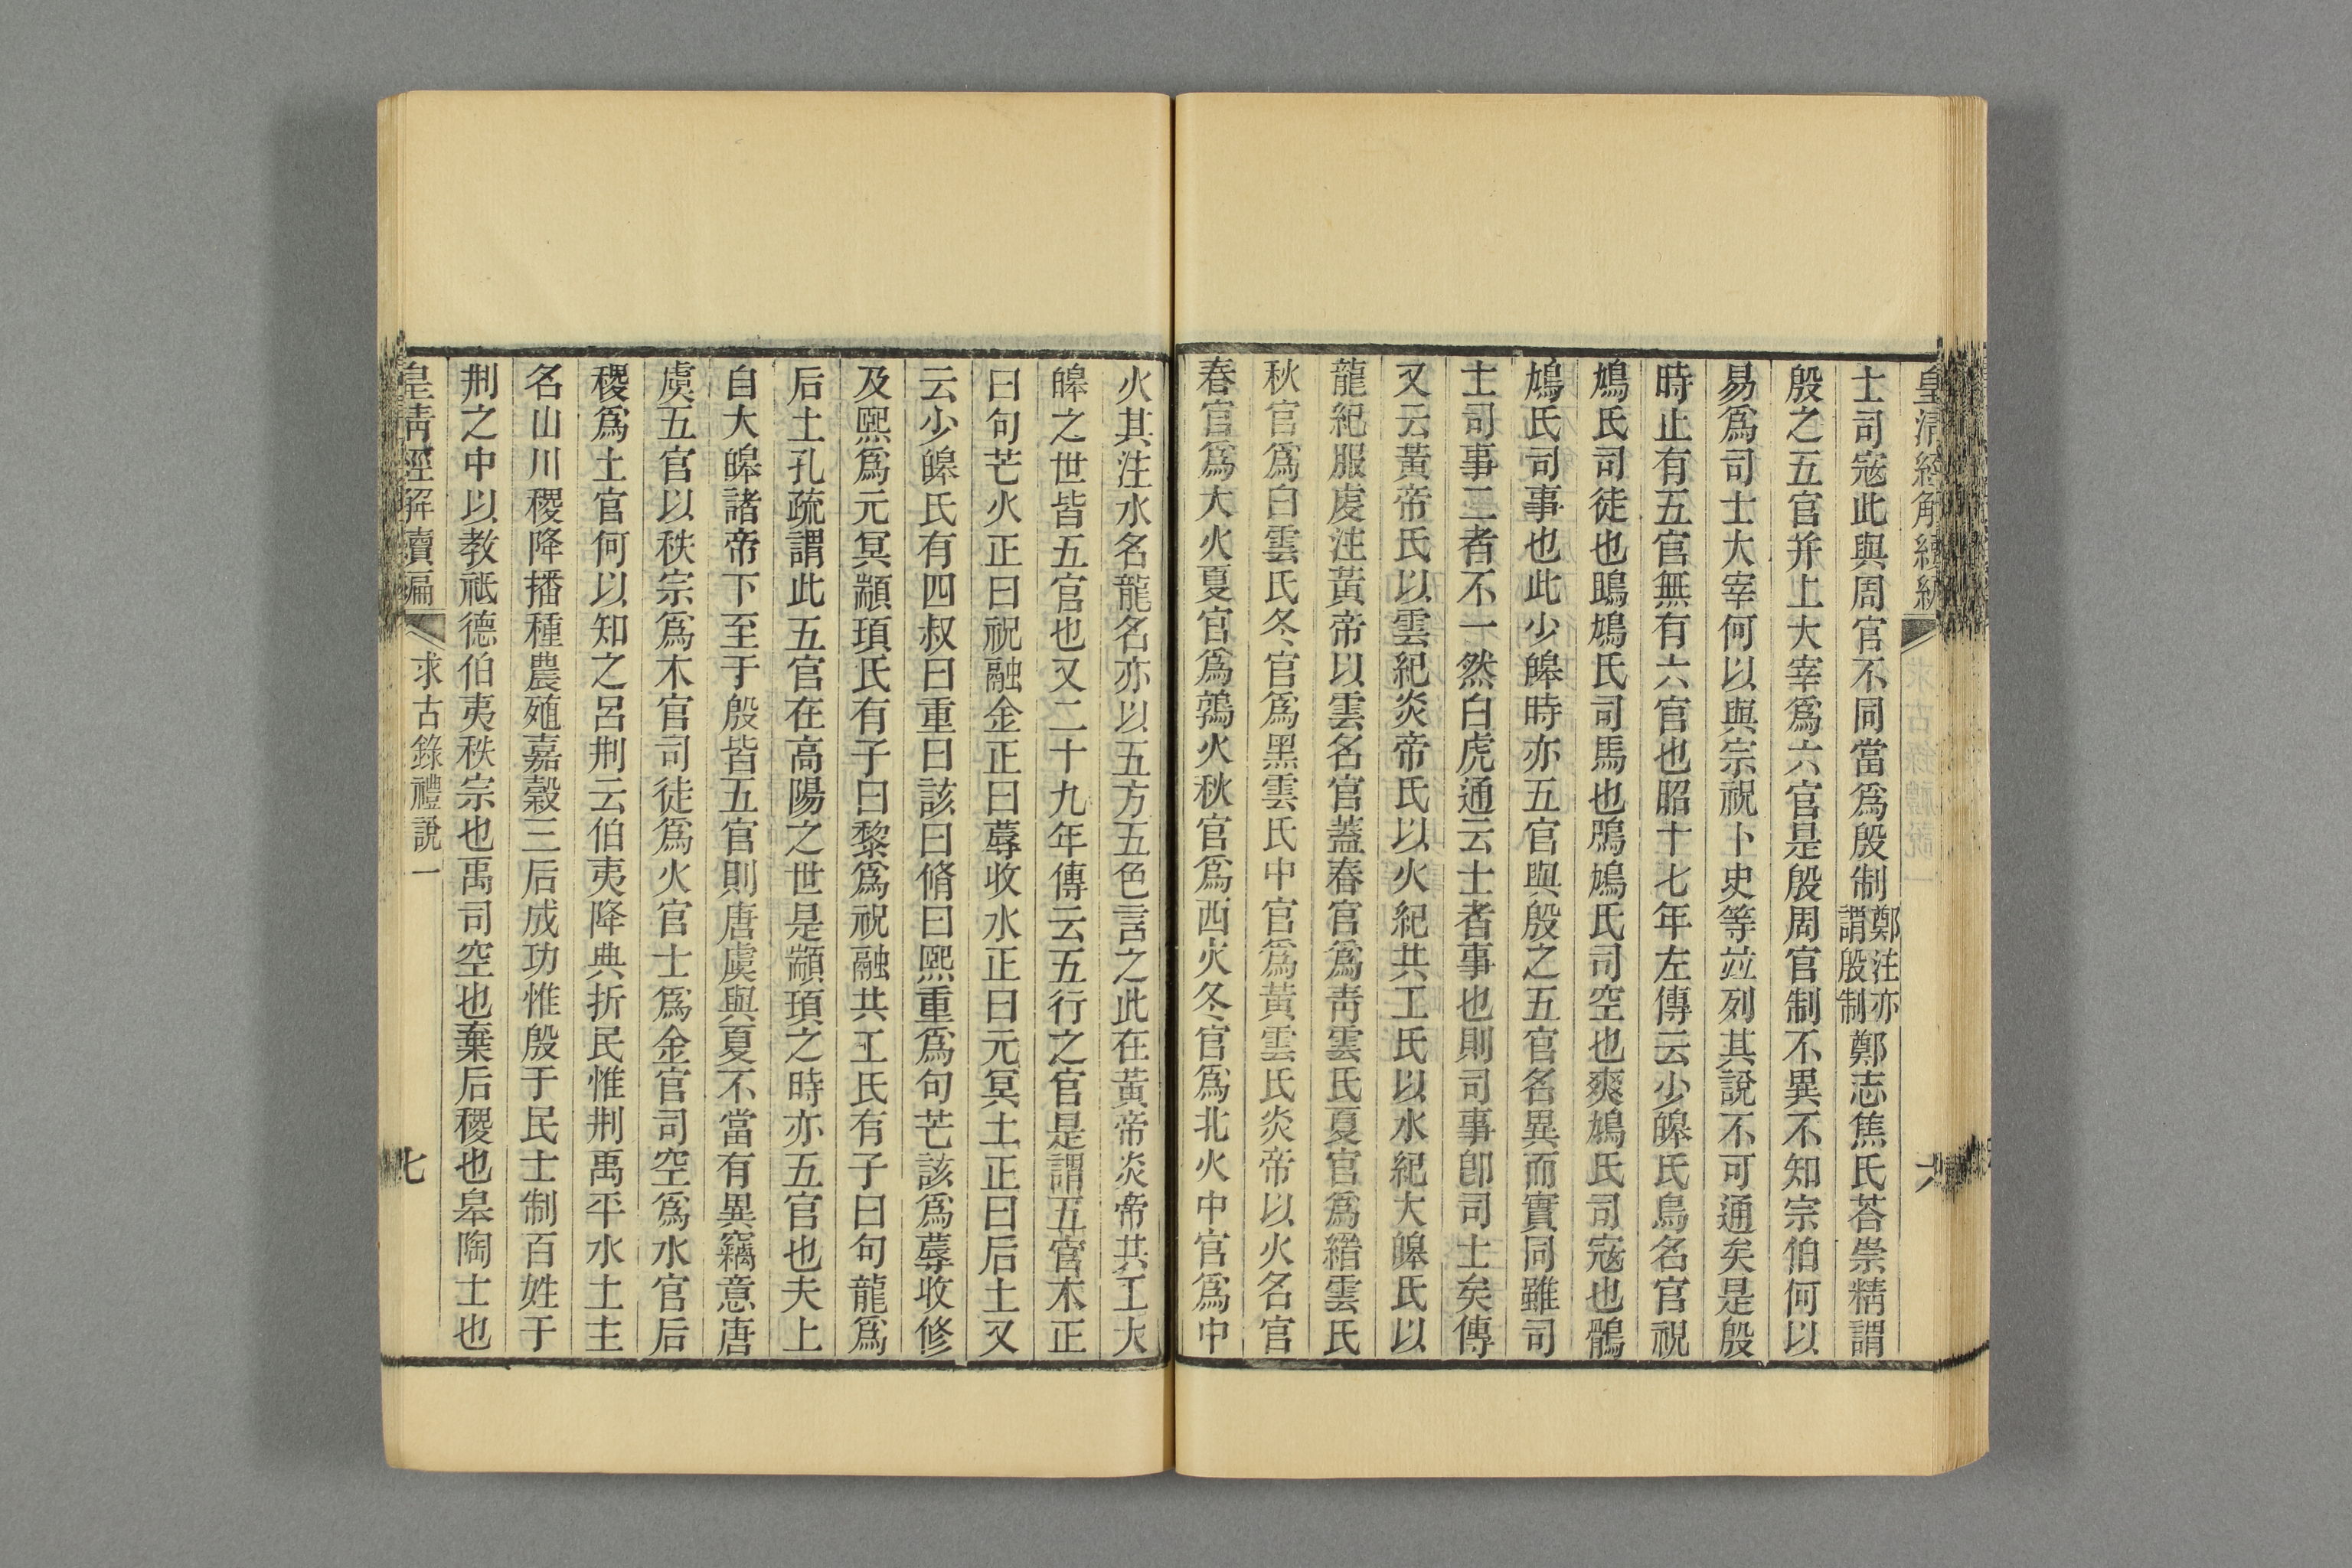 皇清經解續編
士司寇此與周官不同當爲殷制鄭注亦謂殷制鄭志焦氏荅崇精謂
殷之五官并上大宰爲六官是殷周官制不異不知宗伯何以
易爲司士大宰何以與宗祝卜史等竝列其說不可通矣是殷
時止有五官無有六官也昭十七年左傳云少皞氏鳥名官祝
鳩氏司徒也鴡鳩氏司馬也鳲鳩氏司空也爽鳩氏司寇也鶻
鳩氏司事也此少皞時亦五官與殷之五官名異而實同雖司
士司事二者不一然白虎通云士者事也則司事卽司士矣傳
又云黃帝氏以雲紀炎帝氏以火紀共工氏以水紀大皞氏以
龍紀服虔注黃帝以雲名官蓋春官爲靑雲氏夏官爲縉雲氏
秋官爲白雲氏冬官爲黑雲氏中官爲黃雲氏炎帝以火名官
春官爲大火夏官爲鶉火秋官爲西火冬官爲北火中官爲中
火其注水名龍名亦以五方五色言之此在黃帝炎帝共工大
皞之世皆五官也又二十九年傳云五行之官是謂五官木正
曰句芒火正曰祝融金正曰蓐收水正曰元冥土正曰后土又
云少皞氏有四叔曰重曰該曰脩曰熙重爲句芒該爲蓐收修
及熙爲元冥顓頊氏有子曰黎爲祝融共工氏有子曰句龍爲
后土孔疏謂此五官在高陽之世是顓頊之時亦五官也夫上
自大皞諸帝下至于殷皆五官則唐虞與夏不當有異竊意唐
虞五官以秩宗爲木官司徒爲火官士爲金官司空爲水官后
稷爲土官何以知之呂刑云伯夷降典折民惟刑禹平水土主
名山川稷降播種農殖嘉穀三后成功惟殷于民士制百姓于
刑之中以教祗德伯夷秩宗也禹司空也棄后稷也皋陶士也
皇清經解續編 求古錄禮說一 七